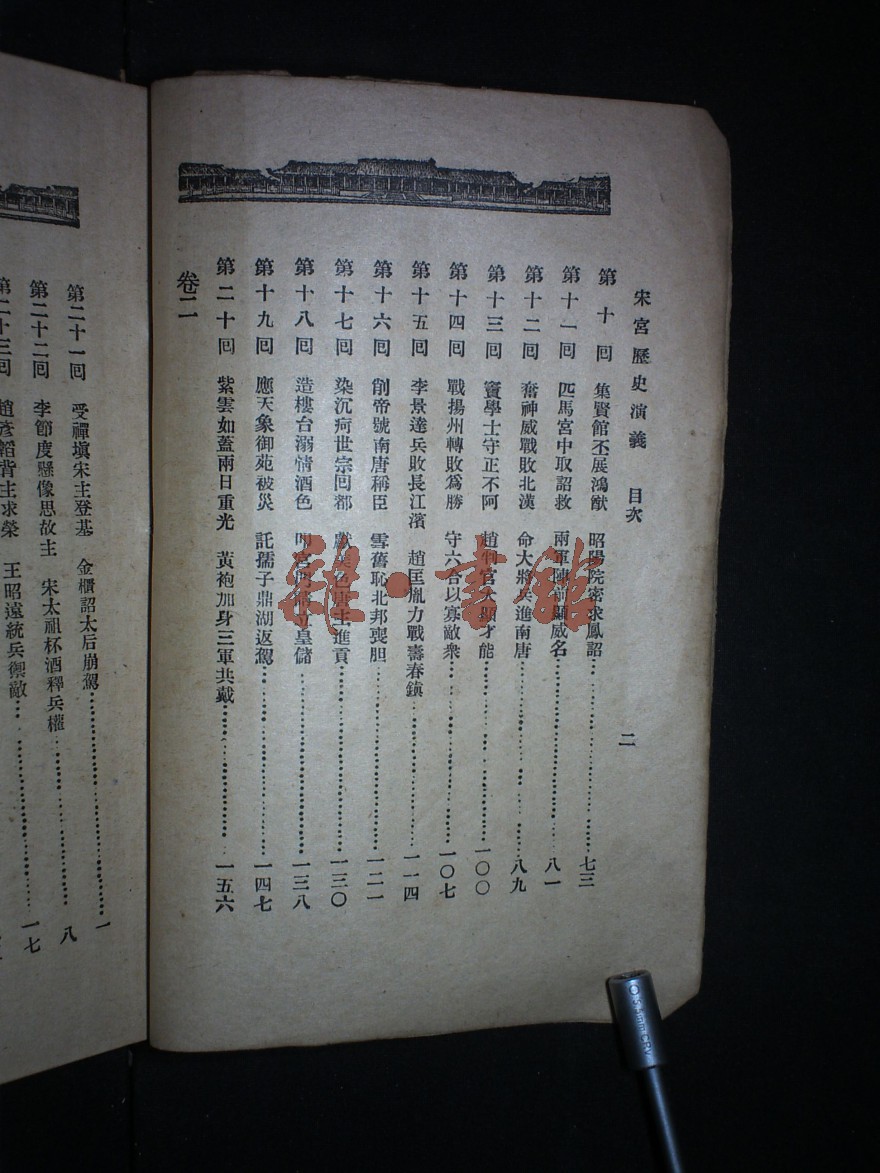 宋宮歷史演義 目次 二
第十回 集賢館丕展鴻猷 昭陽院密求鳳詔 七三
第十一回 匹馬宮中取詔救 兩軍陣前顯威名 八一
第十二回 奮神威戰敗北漢 命大將兵進南唐 八九
第十三回 竇學士守正不阿 趙判官大顯才能 一〇〇
第十四回 戰揚州轉敗爲勝 守六合以寡敵衆 一〇七
第十五回 李景達兵敗長江濱 趙匡胤力戰壽春鎮 一一四
第十六回 削帝號南唐稱臣 雪舊恥北邦喪胆 一二一
第十七回 染沉疴世宗回都 獻美色唐主進貢 一三〇
第十八回 造樓台溺情酒色 宮門 立皇儲 一三八
第十九回 應天象御苑被災 託孺子鼎湖返駕 一四七
第二十回 紫雲如蓋兩日重光 黃袍加身三軍共戴 一五六
卷二
第二十一回 受禪壇宋主登基 金櫃詔太后崩駕 一
第二十二回 李節度懸像思故主 宋太祖杯酒釋兵權 八
第二十三回 趙彥韜背主求榮 王昭遠統兵禦敵 一七
雜·書館